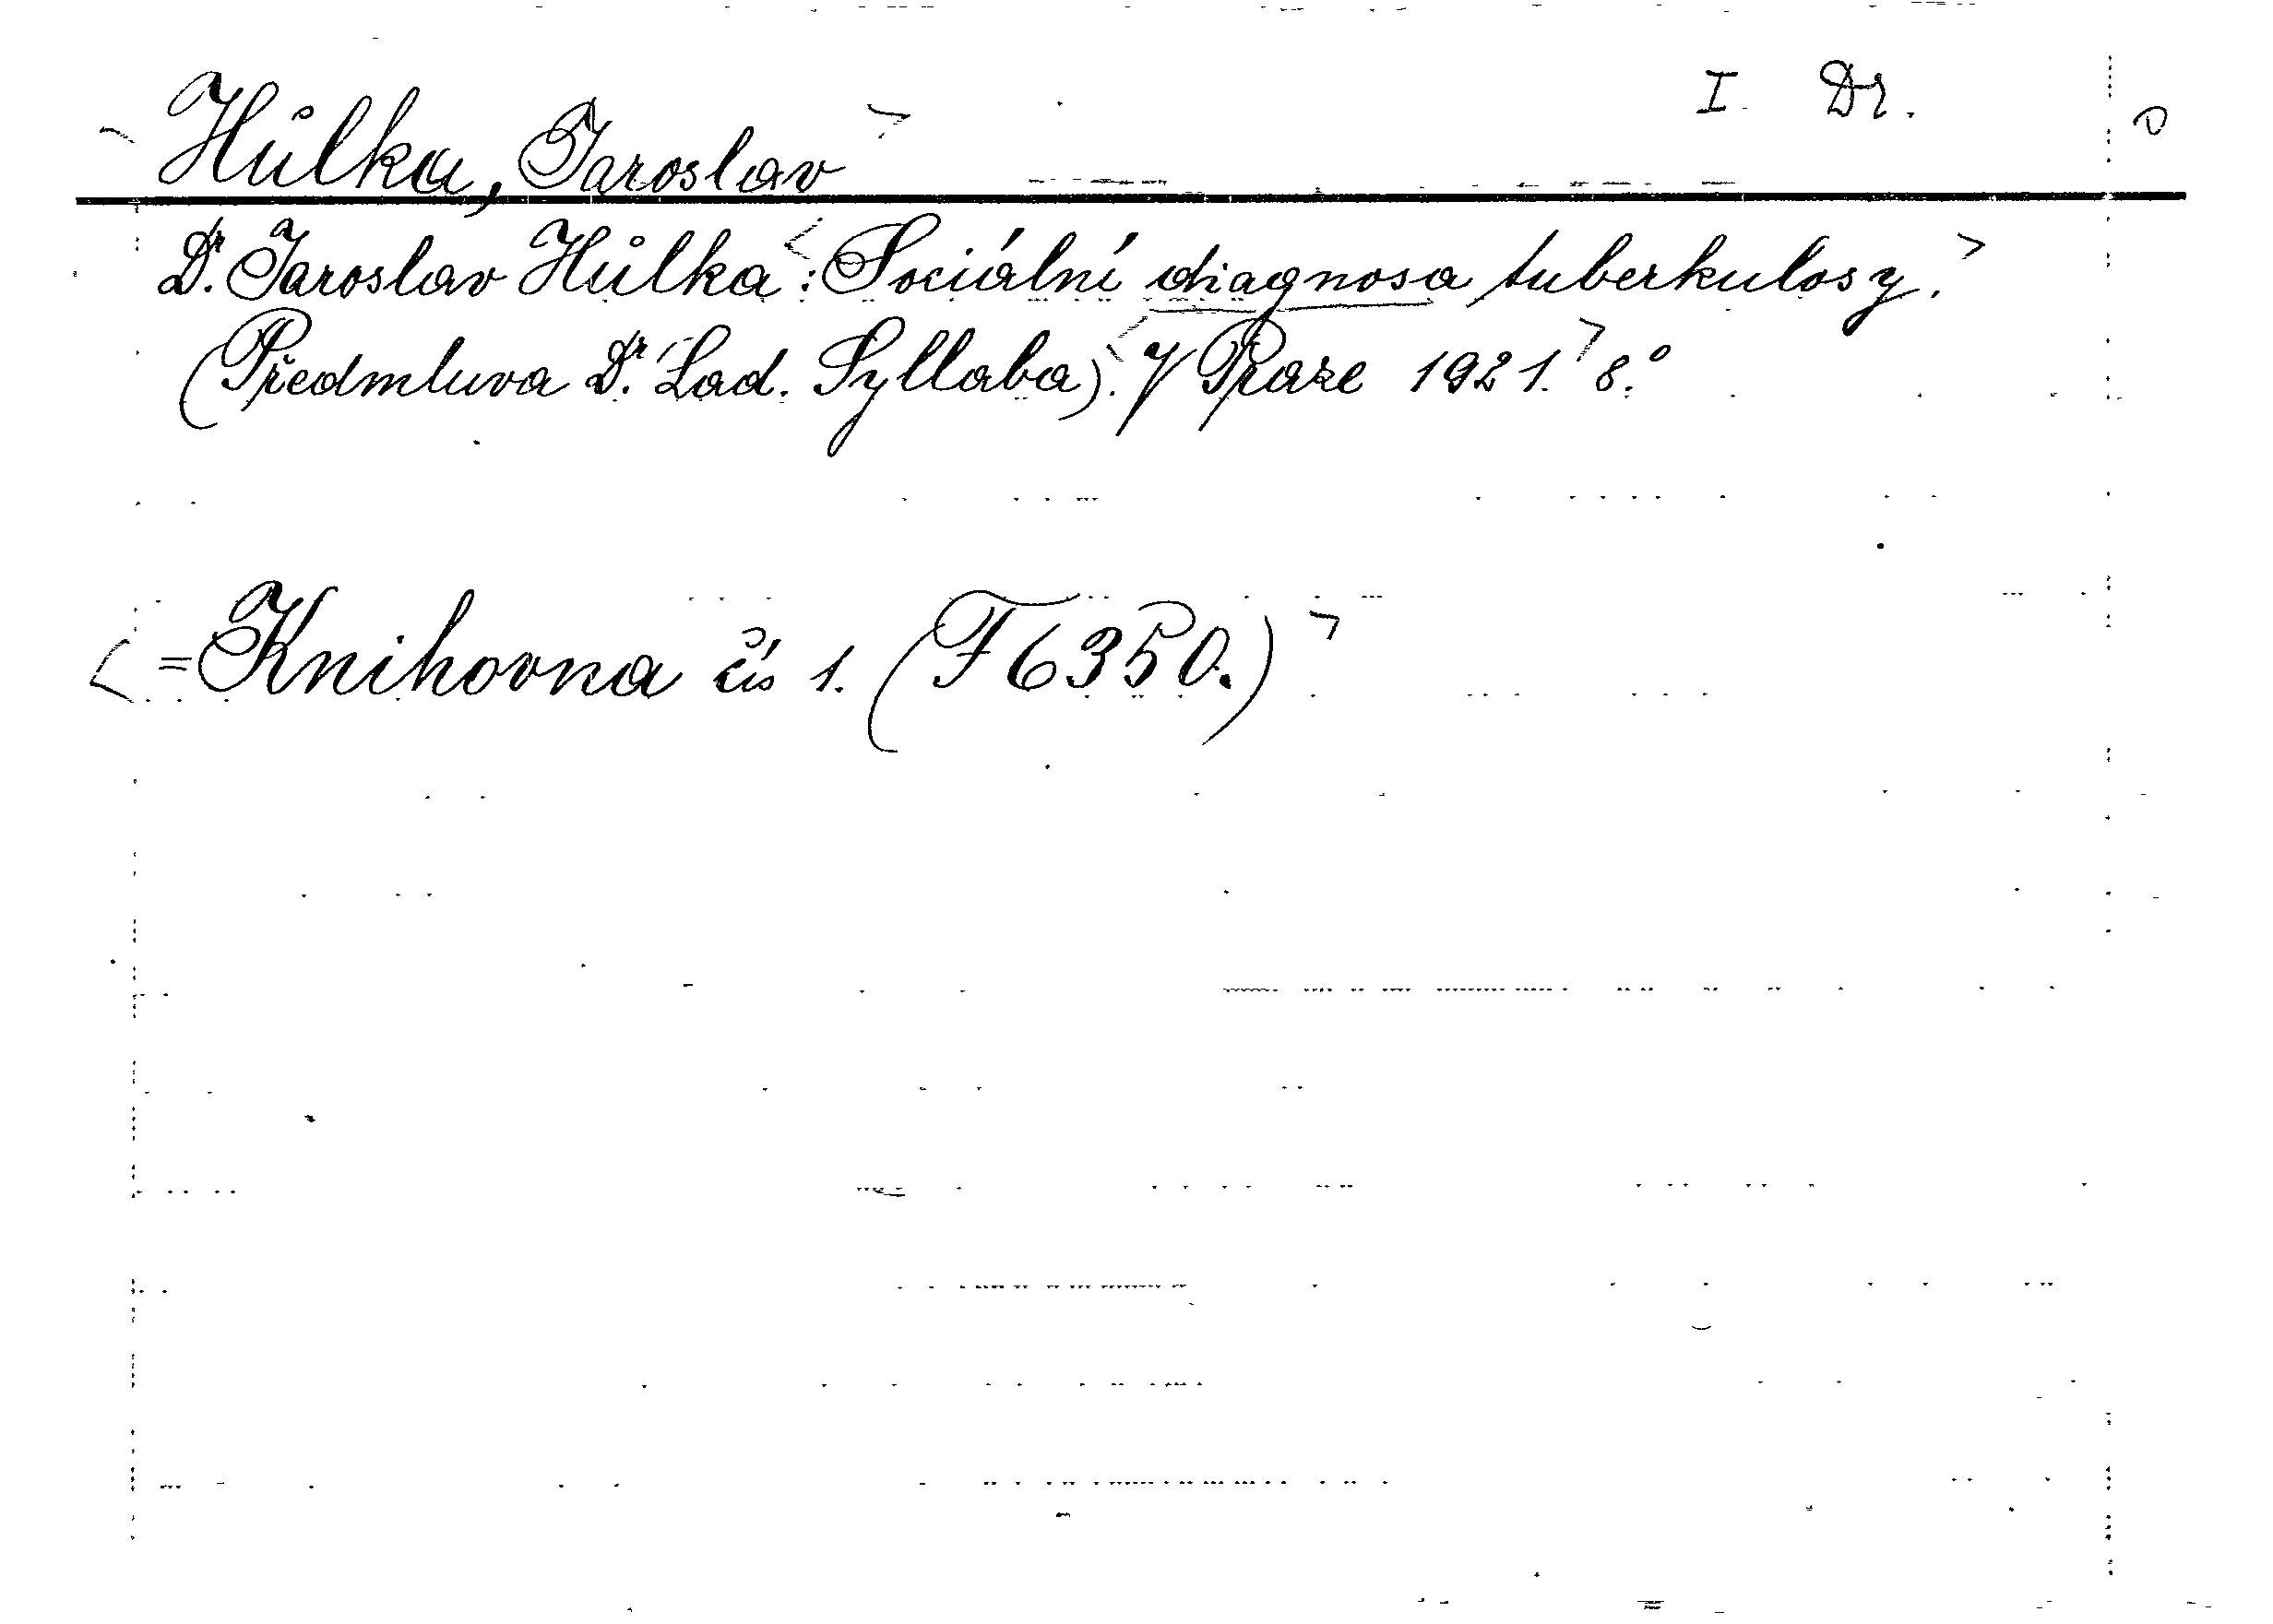 I Dr.
Hůlka, Jaroslav
Dr. Jaroslav Hůlka: Sociální diagnosa tuberkulosy.
(Předmluva Dr. Lad. Syllaba). V Praze 1921. 8.°
=Knihovna čís 1. (F 6350.)